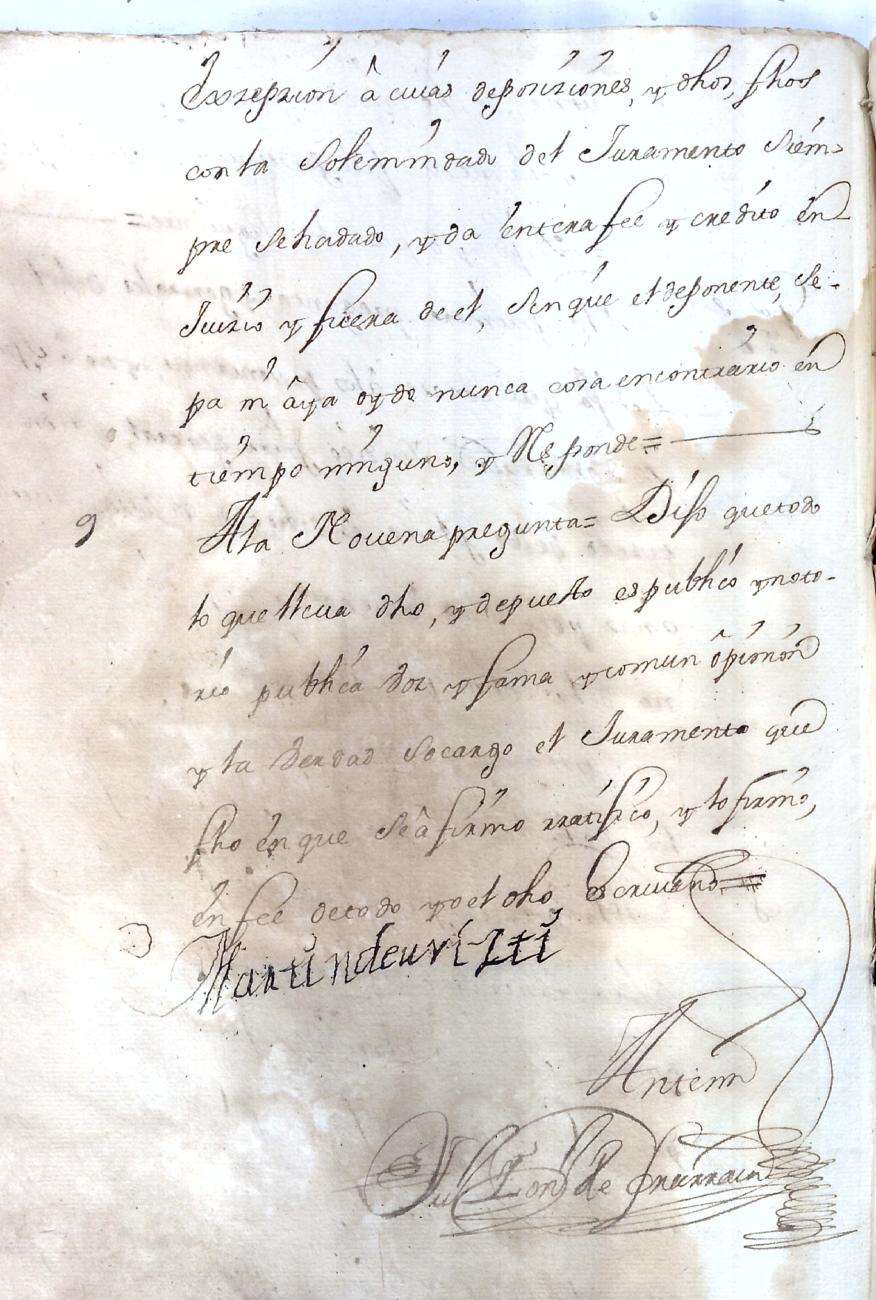 Exsepzion â cuias deposiziones, y dhos, fhos
con la Solemnidad del Juramento Siem-
pre se ha dado, y da entera fee y credito en
Juizio y fuera de el, sin que el deponente, se-
pa ni âya oydo nunca cosa en contrario en
tiempo ninguno, y Responde=
9 A la Nouena pregunta= Dijo que todo
lo que lleua dho, y depuesto es publico y noto-
rio publica voz y fama y comun ôpinion
y la verdad so cargo el Juramento que
fho en que se âfirmo rratifico, y lo firmo,
en fee de todo yo el dho Escriuano=
Martin de uriztti
Antemi
de